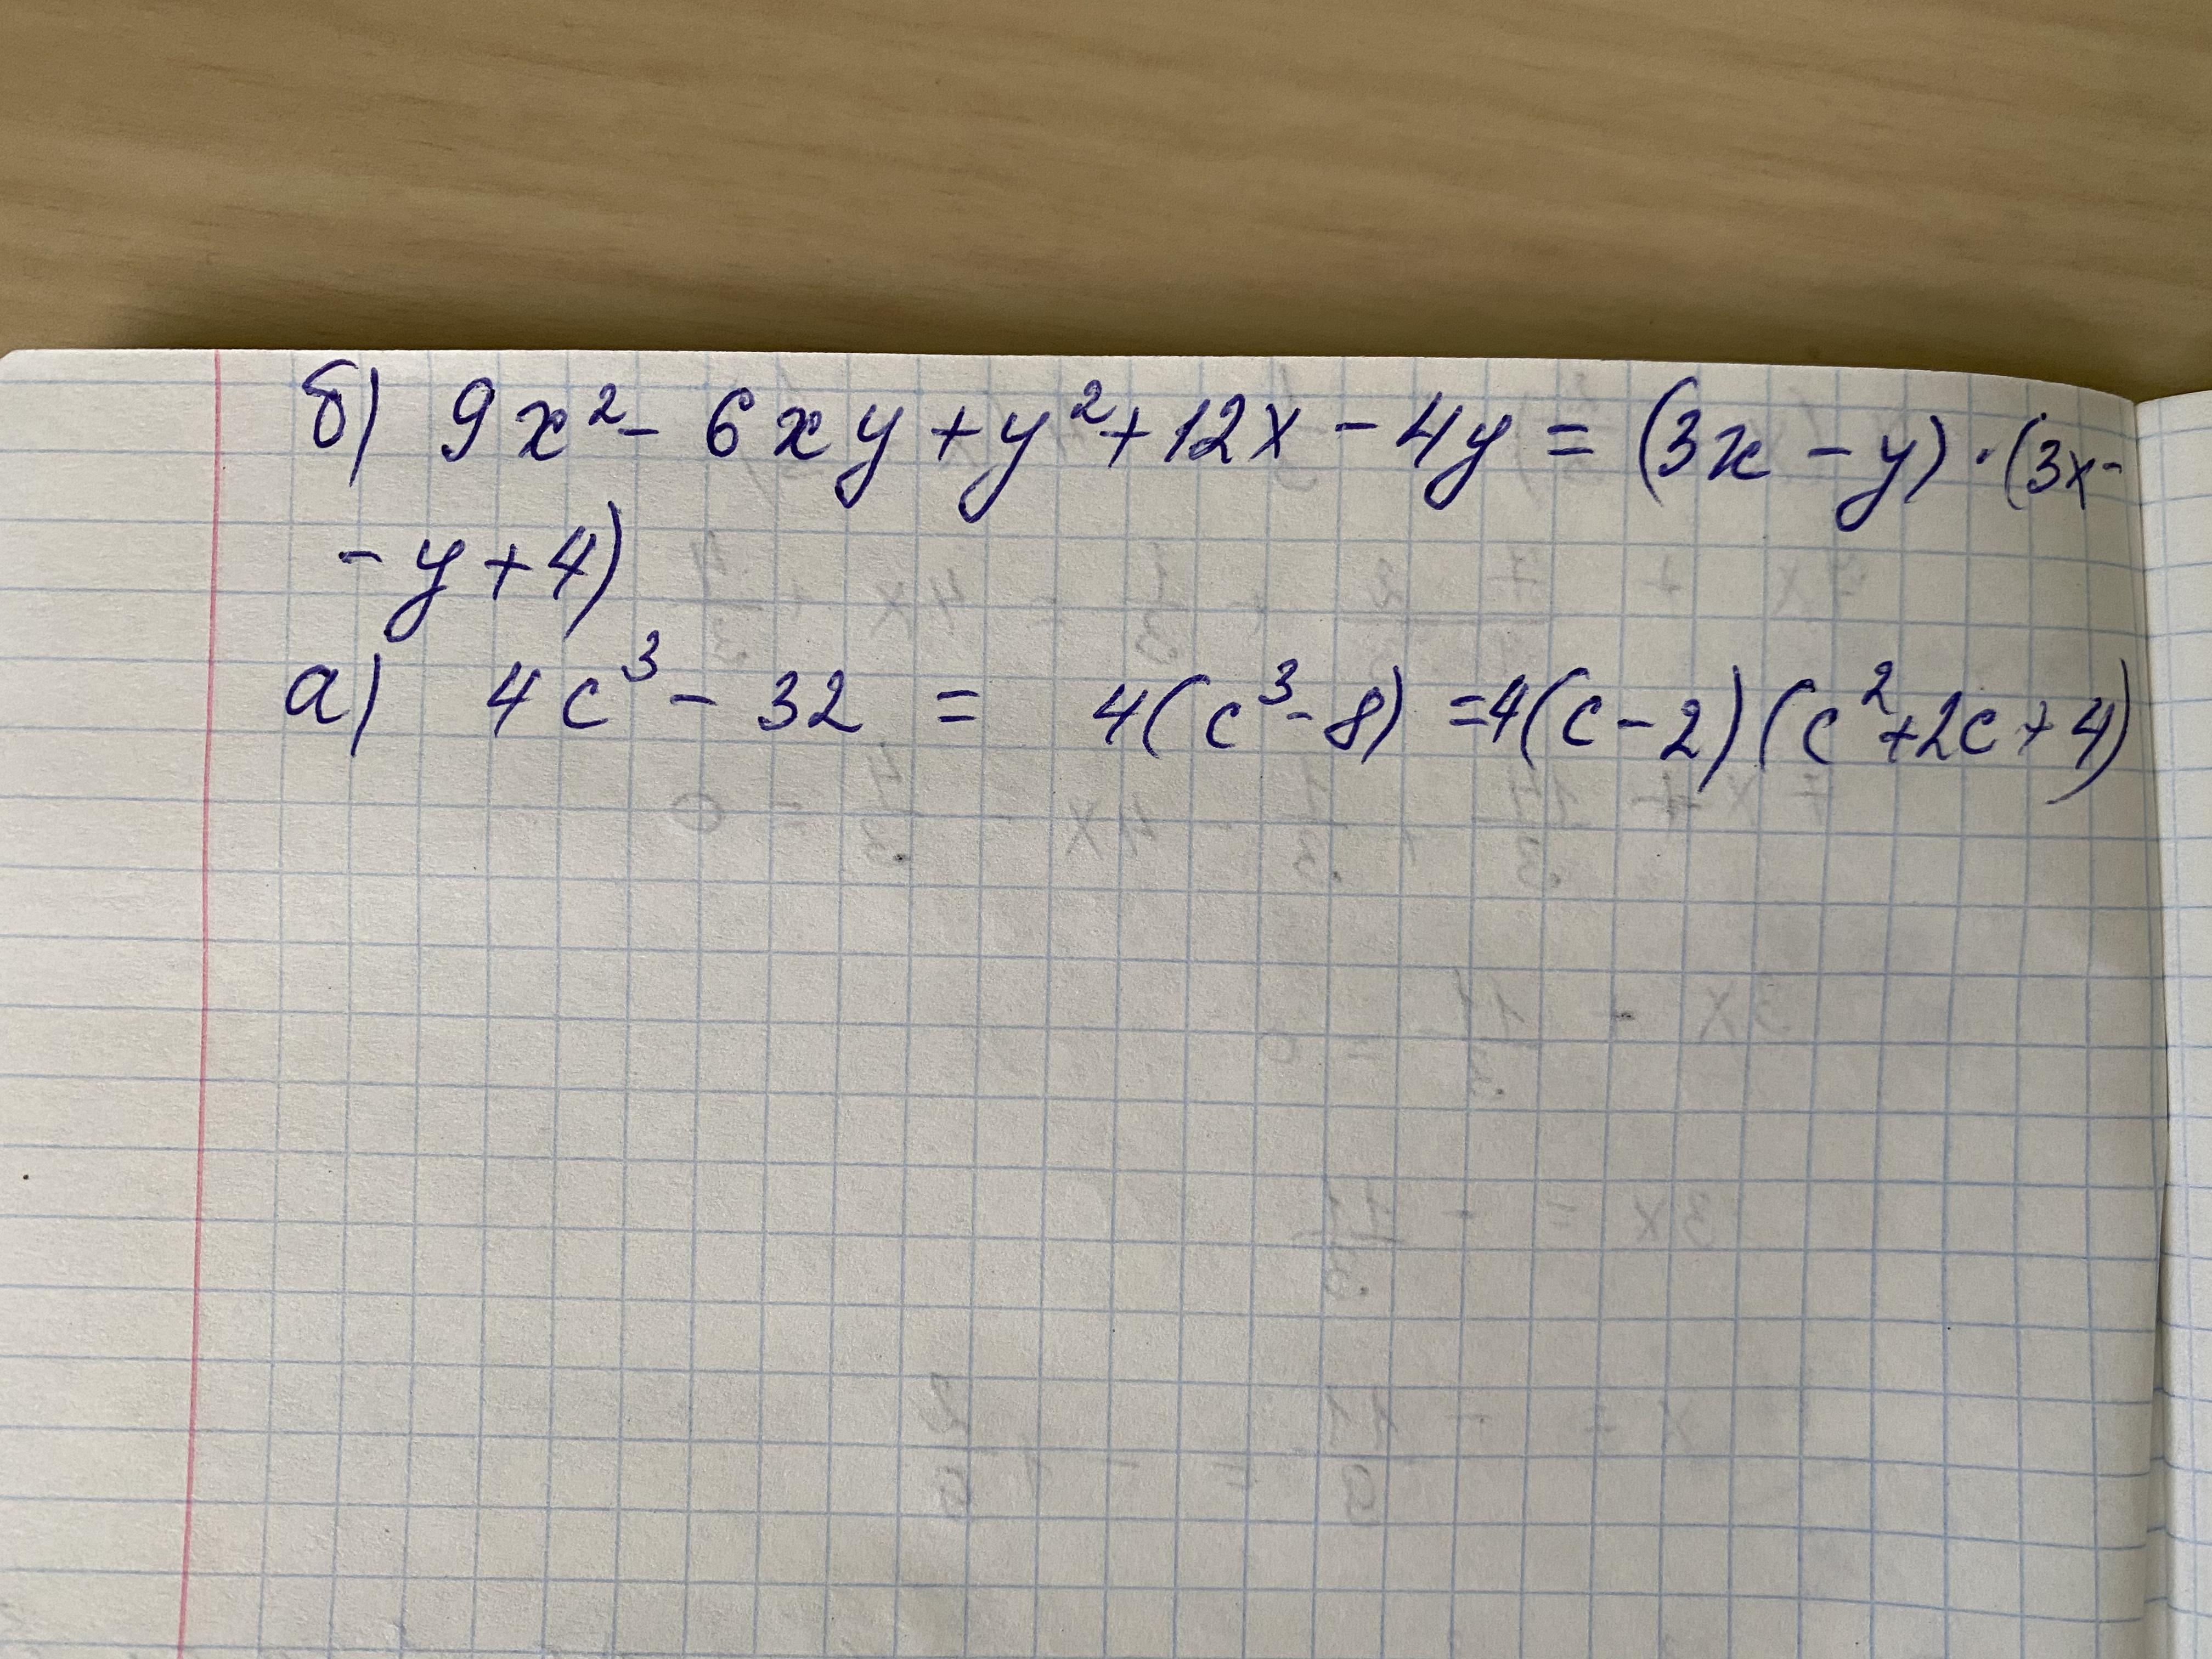 б) 9x² - 6xy + y² + 12x - 4y = (3x - y) · (3x -
- y + 4)
а) 4c³ - 32 = 4(c³ - 8) = 4(c - 2)(c² + 2c + 4)